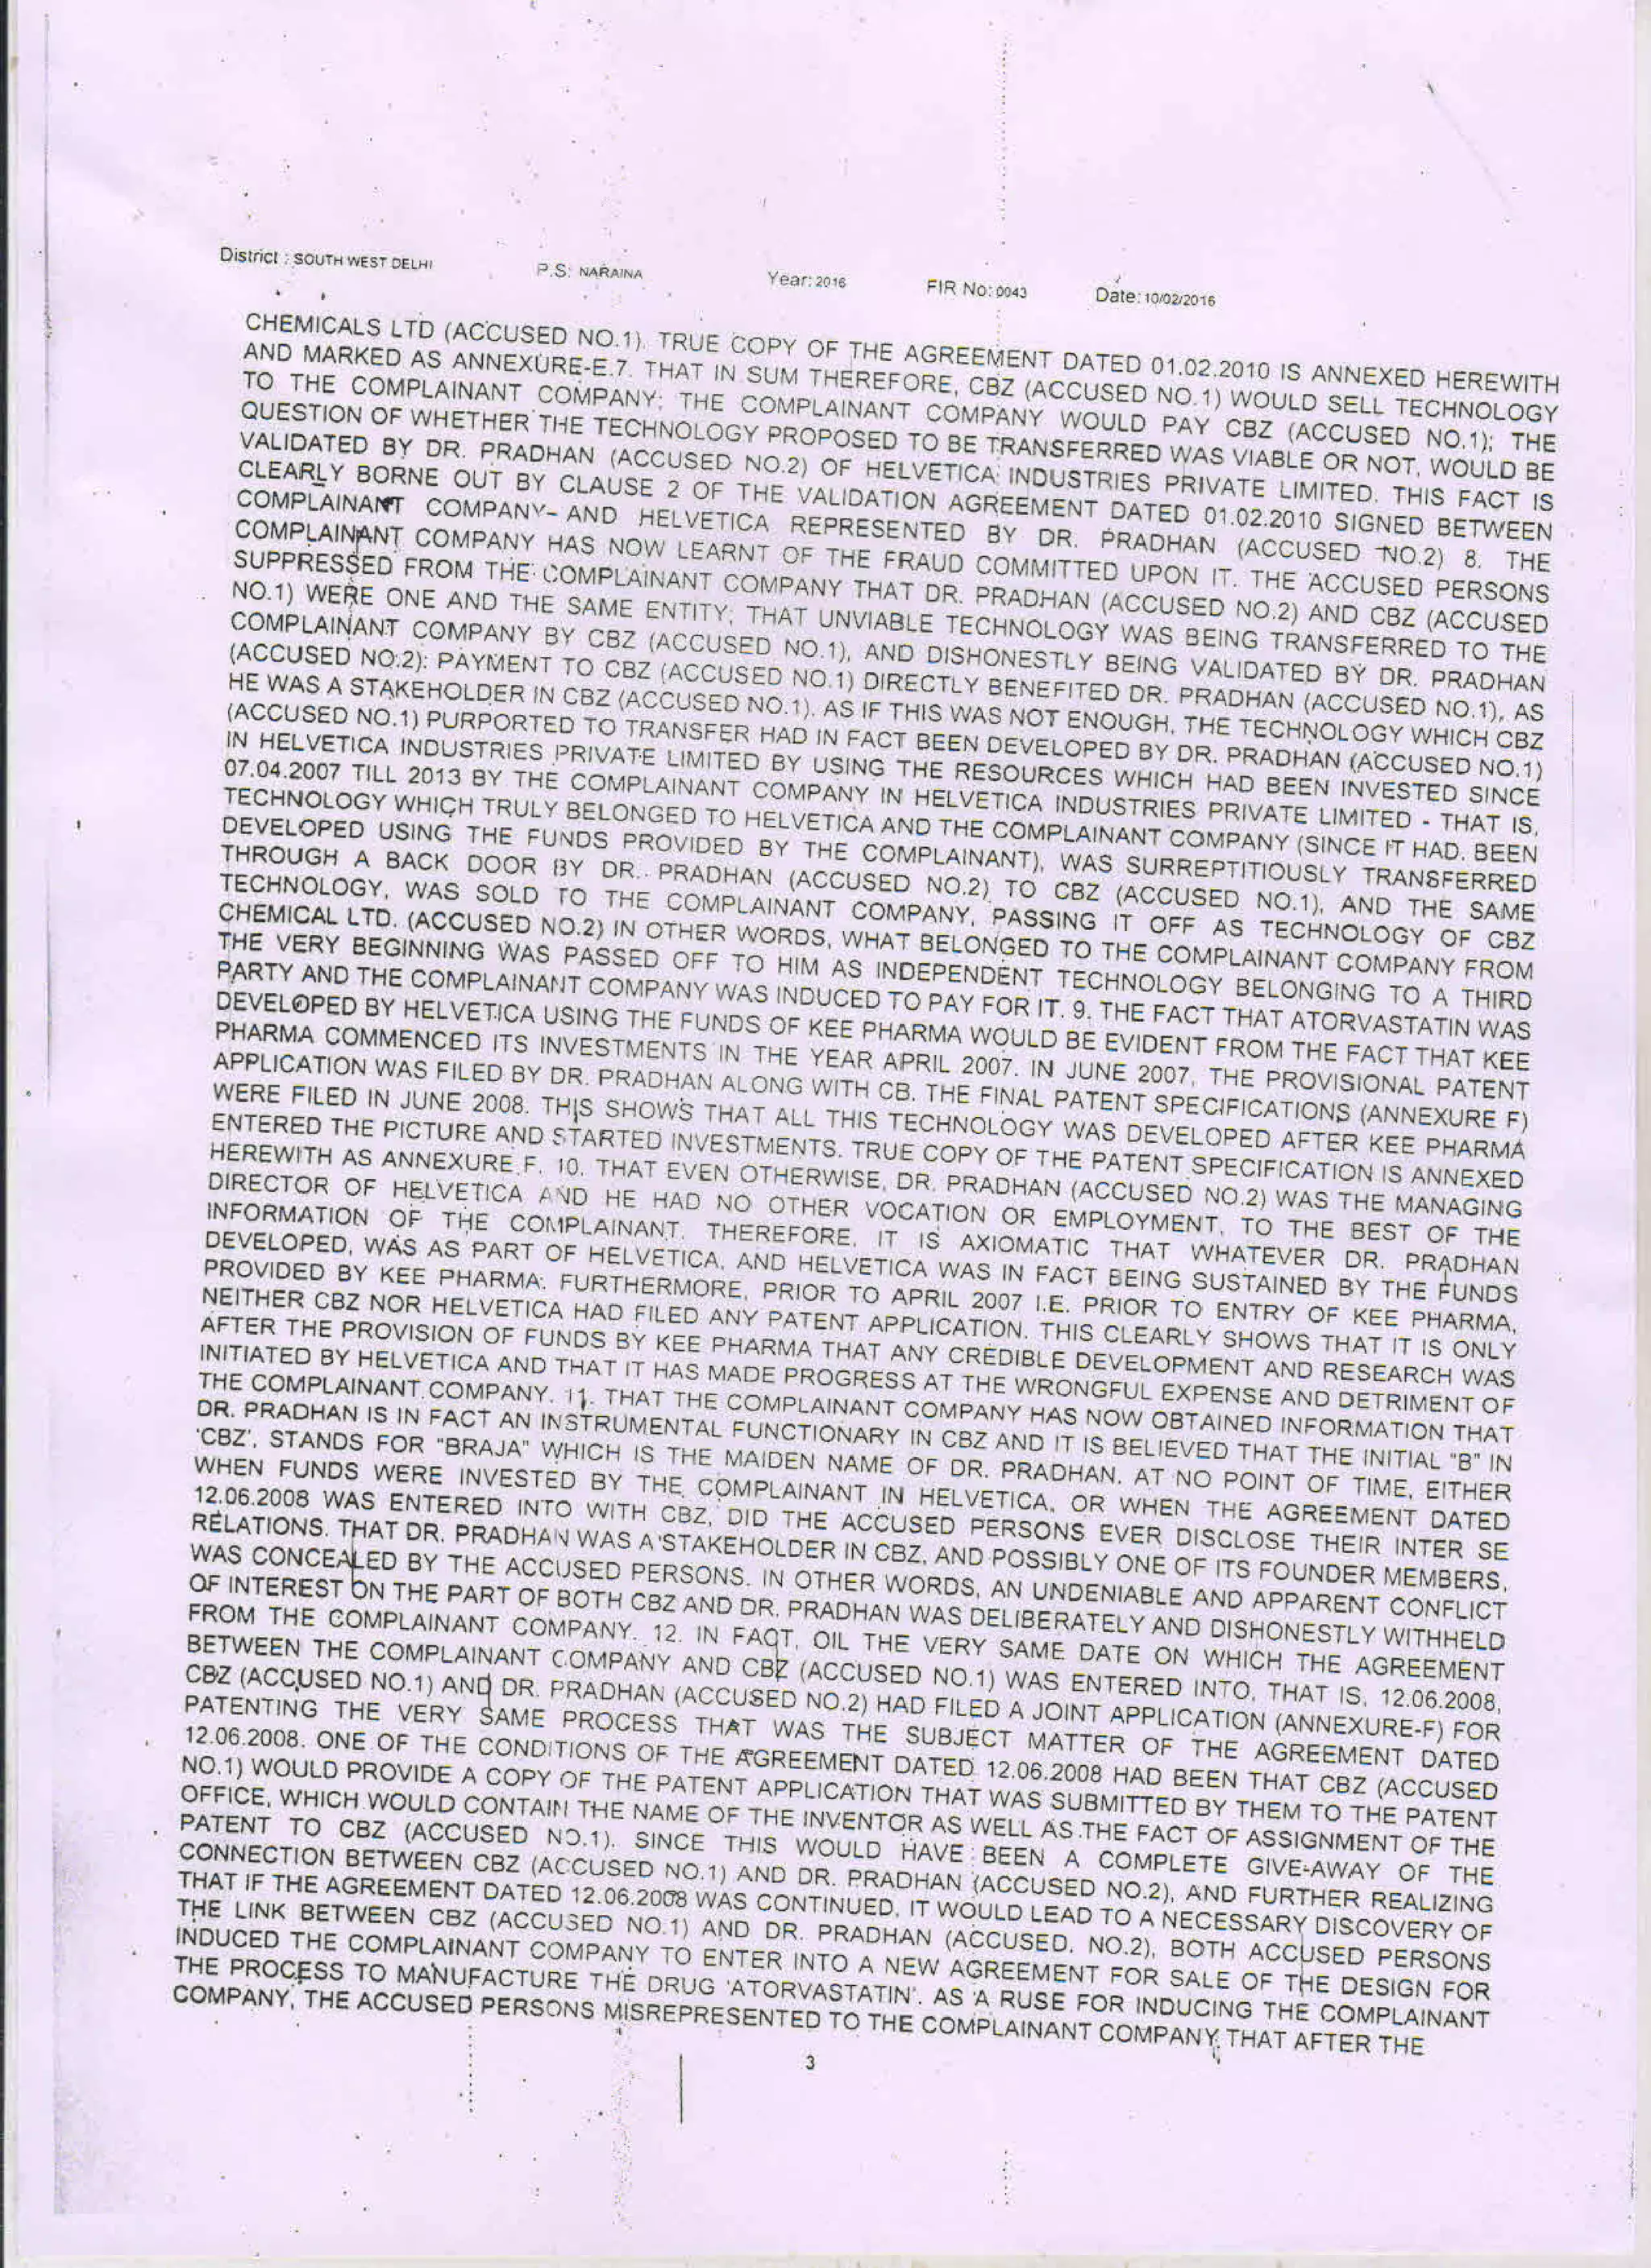 District : SOUTH WEST DELHI P.S: NARAINA Year: 2016 FIR No: 0043 Date: 10/02/2016
CHEMICALS LTD (ACCUSED NO.1). TRUE COPY OF THE AGREEMENT DATED 01.02.2010 IS ANNEXED HEREWITH
AND MARKED AS ANNEXURE-E.7. THAT IN SUM THEREFORE, CBZ (ACCUSED NO.1) WOULD SELL TECHNOLOGY
TO THE COMPLAINANT COMPANY; THE COMPLAINANT COMPANY WOULD PAY CBZ (ACCUSED NO.1); THE
QUESTION OF WHETHER THE TECHNOLOGY PROPOSED TO BE TRANSFERRED WAS VIABLE OR NOT, WOULD BE
VALIDATED BY DR. PRADHAN (ACCUSED NO.2) OF HELVETICA INDUSTRIES PRIVATE LIMITED. THIS FACT IS
CLEARLY BORNE OUT BY CLAUSE 2 OF THE VALIDATION AGREEMENT DATED 01.02.2010 SIGNED BETWEEN
COMPLAINANT COMPANY- AND HELVETICA REPRESENTED BY DR. PRADHAN (ACCUSED NO.2) 8. THE
COMPLAINANT COMPANY HAS NOW LEARNT OF THE FRAUD COMMITTED UPON IT. THE ACCUSED PERSONS
SUPPRESSED FROM THE COMPLAINANT COMPANY THAT DR. PRADHAN (ACCUSED NO.2) AND CBZ (ACCUSED
NO.1) WERE ONE AND THE SAME ENTITY; THAT UNVIABLE TECHNOLOGY WAS BEING TRANSFERRED TO THE
COMPLAINANT COMPANY BY CBZ (ACCUSED NO.1), AND DISHONESTLY BEING VALIDATED BY DR. PRADHAN
(ACCUSED NO.2): PAYMENT TO CBZ (ACCUSED NO.1) DIRECTLY BENEFITED DR. PRADHAN (ACCUSED NO.1), AS
HE WAS A STAKEHOLDER IN CBZ (ACCUSED NO.1). AS IF THIS WAS NOT ENOUGH, THE TECHNOLOGY WHICH CBZ
(ACCUSED NO.1) PURPORTED TO TRANSFER HAD IN FACT BEEN DEVELOPED BY DR. PRADHAN (ACCUSED NO.1)
IN HELVETICA INDUSTRIES PRIVATE LIMITED BY USING THE RESOURCES WHICH HAD BEEN INVESTED SINCE
07.04.2007 TILL 2013 BY THE COMPLAINANT COMPANY IN HELVETICA INDUSTRIES PRIVATE LIMITED - THAT IS,
TECHNOLOGY WHICH TRULY BELONGED TO HELVETICA AND THE COMPLAINANT COMPANY (SINCE IT HAD. BEEN
DEVELOPED USING THE FUNDS PROVIDED BY THE COMPLAINANT), WAS SURREPTITIOUSLY TRANSFERRED
THROUGH A BACK DOOR BY DR. PRADHAN (ACCUSED NO.2) TO CBZ (ACCUSED NO.1), AND THE SAME
TECHNOLOGY, WAS SOLD TO THE COMPLAINANT COMPANY, PASSING IT OFF AS TECHNOLOGY OF CBZ
CHEMICAL LTD. (ACCUSED NO.2) IN OTHER WORDS, WHAT BELONGED TO THE COMPLAINANT COMPANY FROM
THE VERY BEGINNING WAS PASSED OFF TO HIM AS INDEPENDENT TECHNOLOGY BELONGING TO A THIRD
PARTY AND THE COMPLAINANT COMPANY WAS INDUCED TO PAY FOR IT. 9. THE FACT THAT ATORVASTATIN WAS
DEVELOPED BY HELVETICA USING THE FUNDS OF KEE PHARMA WOULD BE EVIDENT FROM THE FACT THAT KEE
PHARMA COMMENCED ITS INVESTMENTS IN THE YEAR APRIL 2007. IN JUNE 2007, THE PROVISIONAL PATENT
APPLICATION WAS FILED BY DR. PRADHAN ALONG WITH CB. THE FINAL PATENT SPECIFICATIONS (ANNEXURE F)
WERE FILED IN JUNE 2008. THIS SHOWS THAT ALL THIS TECHNOLOGY WAS DEVELOPED AFTER KEE PHARMA
ENTERED THE PICTURE AND STARTED INVESTMENTS. TRUE COPY OF THE PATENT SPECIFICATION IS ANNEXED
HEREWITH AS ANNEXURE F. 10. THAT EVEN OTHERWISE, DR. PRADHAN (ACCUSED NO.2) WAS THE MANAGING
DIRECTOR OF HELVETICA AND HE HAD NO OTHER VOCATION OR EMPLOYMENT, TO THE BEST OF THE
INFORMATION OF THE COMPLAINANT. THEREFORE, IT IS AXIOMATIC THAT WHATEVER DR. PRADHAN
DEVELOPED, WAS AS PART OF HELVETICA, AND HELVETICA WAS IN FACT BEING SUSTAINED BY THE FUNDS
PROVIDED BY KEE PHARMA. FURTHERMORE, PRIOR TO APRIL 2007 I.E. PRIOR TO ENTRY OF KEE PHARMA,
NEITHER CBZ NOR HELVETICA HAD FILED ANY PATENT APPLICATION. THIS CLEARLY SHOWS THAT IT IS ONLY
AFTER THE PROVISION OF FUNDS BY KEE PHARMA THAT ANY CREDIBLE DEVELOPMENT AND RESEARCH WAS
INITIATED BY HELVETICA AND THAT IT HAS MADE PROGRESS AT THE WRONGFUL EXPENSE AND DETRIMENT OF
THE COMPLAINANT COMPANY. 11. THAT THE COMPLAINANT COMPANY HAS NOW OBTAINED INFORMATION THAT
DR. PRADHAN IS IN FACT AN INSTRUMENTAL FUNCTIONARY IN CBZ AND IT IS BELIEVED THAT THE INITIAL "B" IN
'CBZ', STANDS FOR "BRAJA" WHICH IS THE MAIDEN NAME OF DR. PRADHAN. AT NO POINT OF TIME, EITHER
WHEN FUNDS WERE INVESTED BY THE COMPLAINANT IN HELVETICA, OR WHEN THE AGREEMENT DATED
12.06.2008 WAS ENTERED INTO WITH CBZ, DID THE ACCUSED PERSONS EVER DISCLOSE THEIR INTER SE
RELATIONS. THAT DR. PRADHAN WAS A STAKEHOLDER IN CBZ, AND POSSIBLY ONE OF ITS FOUNDER MEMBERS,
WAS CONCEALED BY THE ACCUSED PERSONS. IN OTHER WORDS, AN UNDENIABLE AND APPARENT CONFLICT
OF INTEREST ON THE PART OF BOTH CBZ AND DR. PRADHAN WAS DELIBERATELY AND DISHONESTLY WITHHELD
FROM THE COMPLAINANT COMPANY. 12. IN FACT, OIL THE VERY SAME DATE ON WHICH THE AGREEMENT
BETWEEN THE COMPLAINANT COMPANY AND CBZ (ACCUSED NO.1) WAS ENTERED INTO, THAT IS, 12.06.2008,
CBZ (ACCUSED NO.1) AND DR. PRADHAN (ACCUSED NO.2) HAD FILED A JOINT APPLICATION (ANNEXURE-F) FOR
PATENTING THE VERY SAME PROCESS THAT WAS THE SUBJECT MATTER OF THE AGREEMENT DATED
12.06.2008. ONE OF THE CONDITIONS OF THE AGREEMENT DATED 12.06.2008 HAD BEEN THAT CBZ (ACCUSED
NO.1) WOULD PROVIDE A COPY OF THE PATENT APPLICATION THAT WAS SUBMITTED BY THEM TO THE PATENT
OFFICE, WHICH WOULD CONTAIN THE NAME OF THE INVENTOR AS WELL AS THE FACT OF ASSIGNMENT OF THE
PATENT TO CBZ (ACCUSED NO.1). SINCE THIS WOULD HAVE BEEN A COMPLETE GIVE-AWAY OF THE
CONNECTION BETWEEN CBZ (ACCUSED NO.1) AND DR. PRADHAN (ACCUSED NO.2), AND FURTHER REALIZING
THAT IF THE AGREEMENT DATED 12.06.2008 WAS CONTINUED, IT WOULD LEAD TO A NECESSARY DISCOVERY OF
THE LINK BETWEEN CBZ (ACCUSED NO.1) AND DR. PRADHAN (ACCUSED. NO.2), BOTH ACCUSED PERSONS
INDUCED THE COMPLAINANT COMPANY TO ENTER INTO A NEW AGREEMENT FOR SALE OF THE DESIGN FOR
THE PROCESS TO MANUFACTURE THE DRUG 'ATORVASTATIN'. AS A RUSE FOR INDUCING THE COMPLAINANT
COMPANY, THE ACCUSED PERSONS MISREPRESENTED TO THE COMPLAINANT COMPANY THAT AFTER THE
3